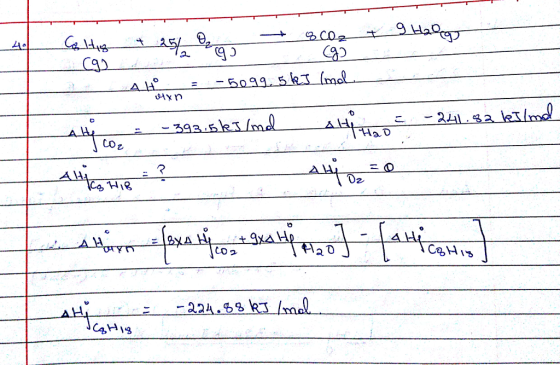 4. C8H18 (g) + 25/2 O2 (g) → 8CO2 (g) + 9H2O(g)
ΔH°rxn = -5099.5 kJ/mol.
ΔH°f CO2 = -393.5 kJ/mol ΔH°f H2O = -241.82 kJ/mol
ΔH°f C8H18 = ? ΔH°f O2 = 0
∴ ΔH°rxn = [8×ΔH°f CO2 + 9×ΔH°f H2O] - [ΔH°f C8H18]
ΔH°f C8H18 = -224.88 kJ/mol.